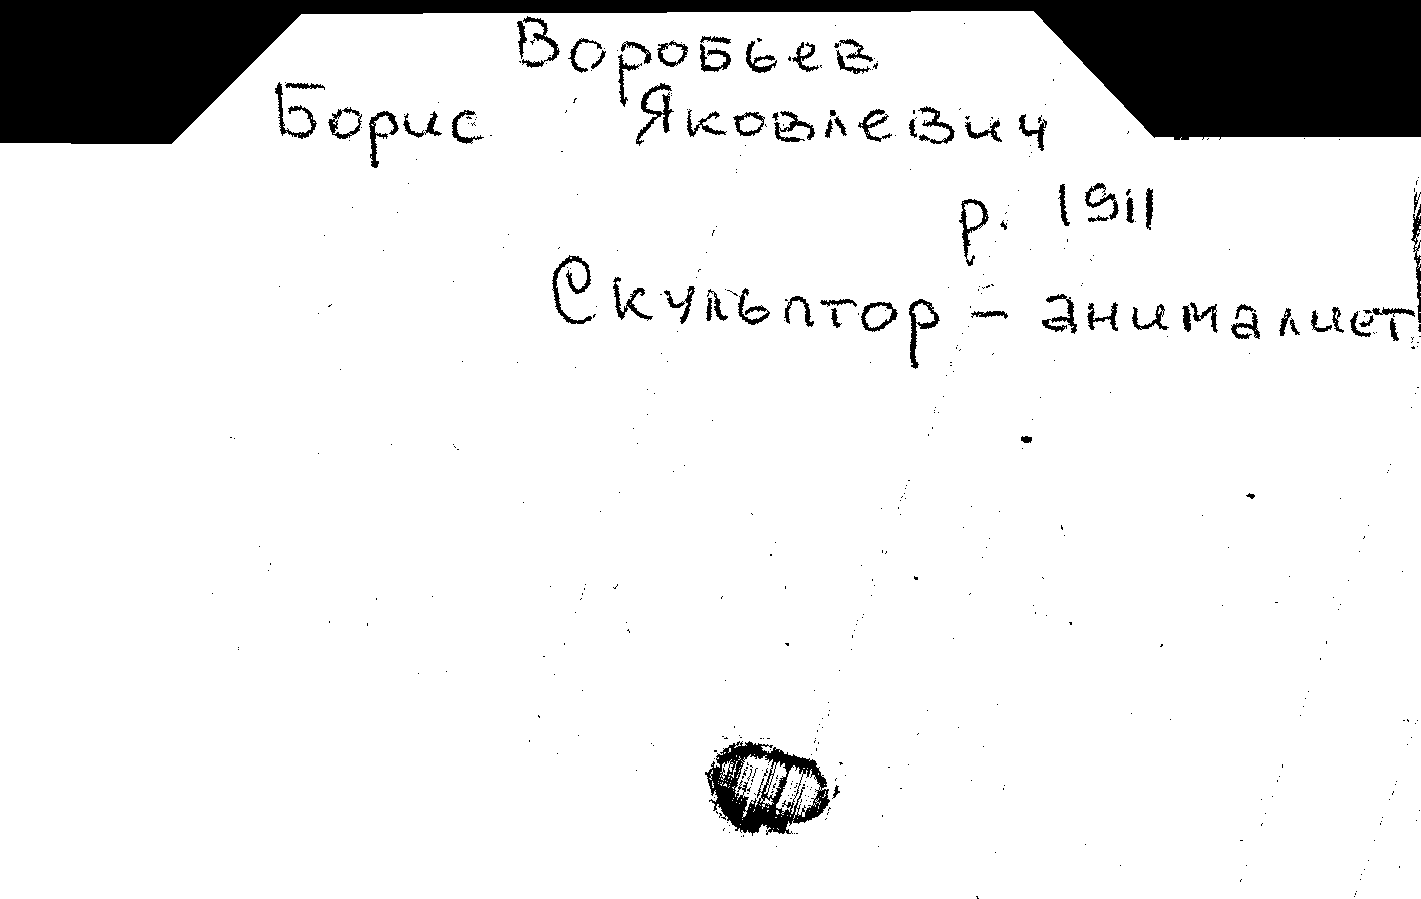 Воробьев
Борис Яковлевич
р. 1911
Скульптор - анималист